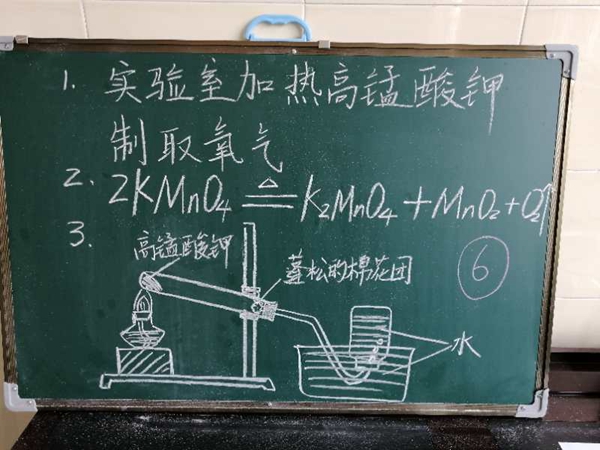 1. 实验室加热高锰酸钾
制取氧气
2. 2KMnO₄ ≜ K₂MnO₄ + MnO₂ + O₂↑
3.
高锰酸钾
蓬松的棉花团
⑥
水